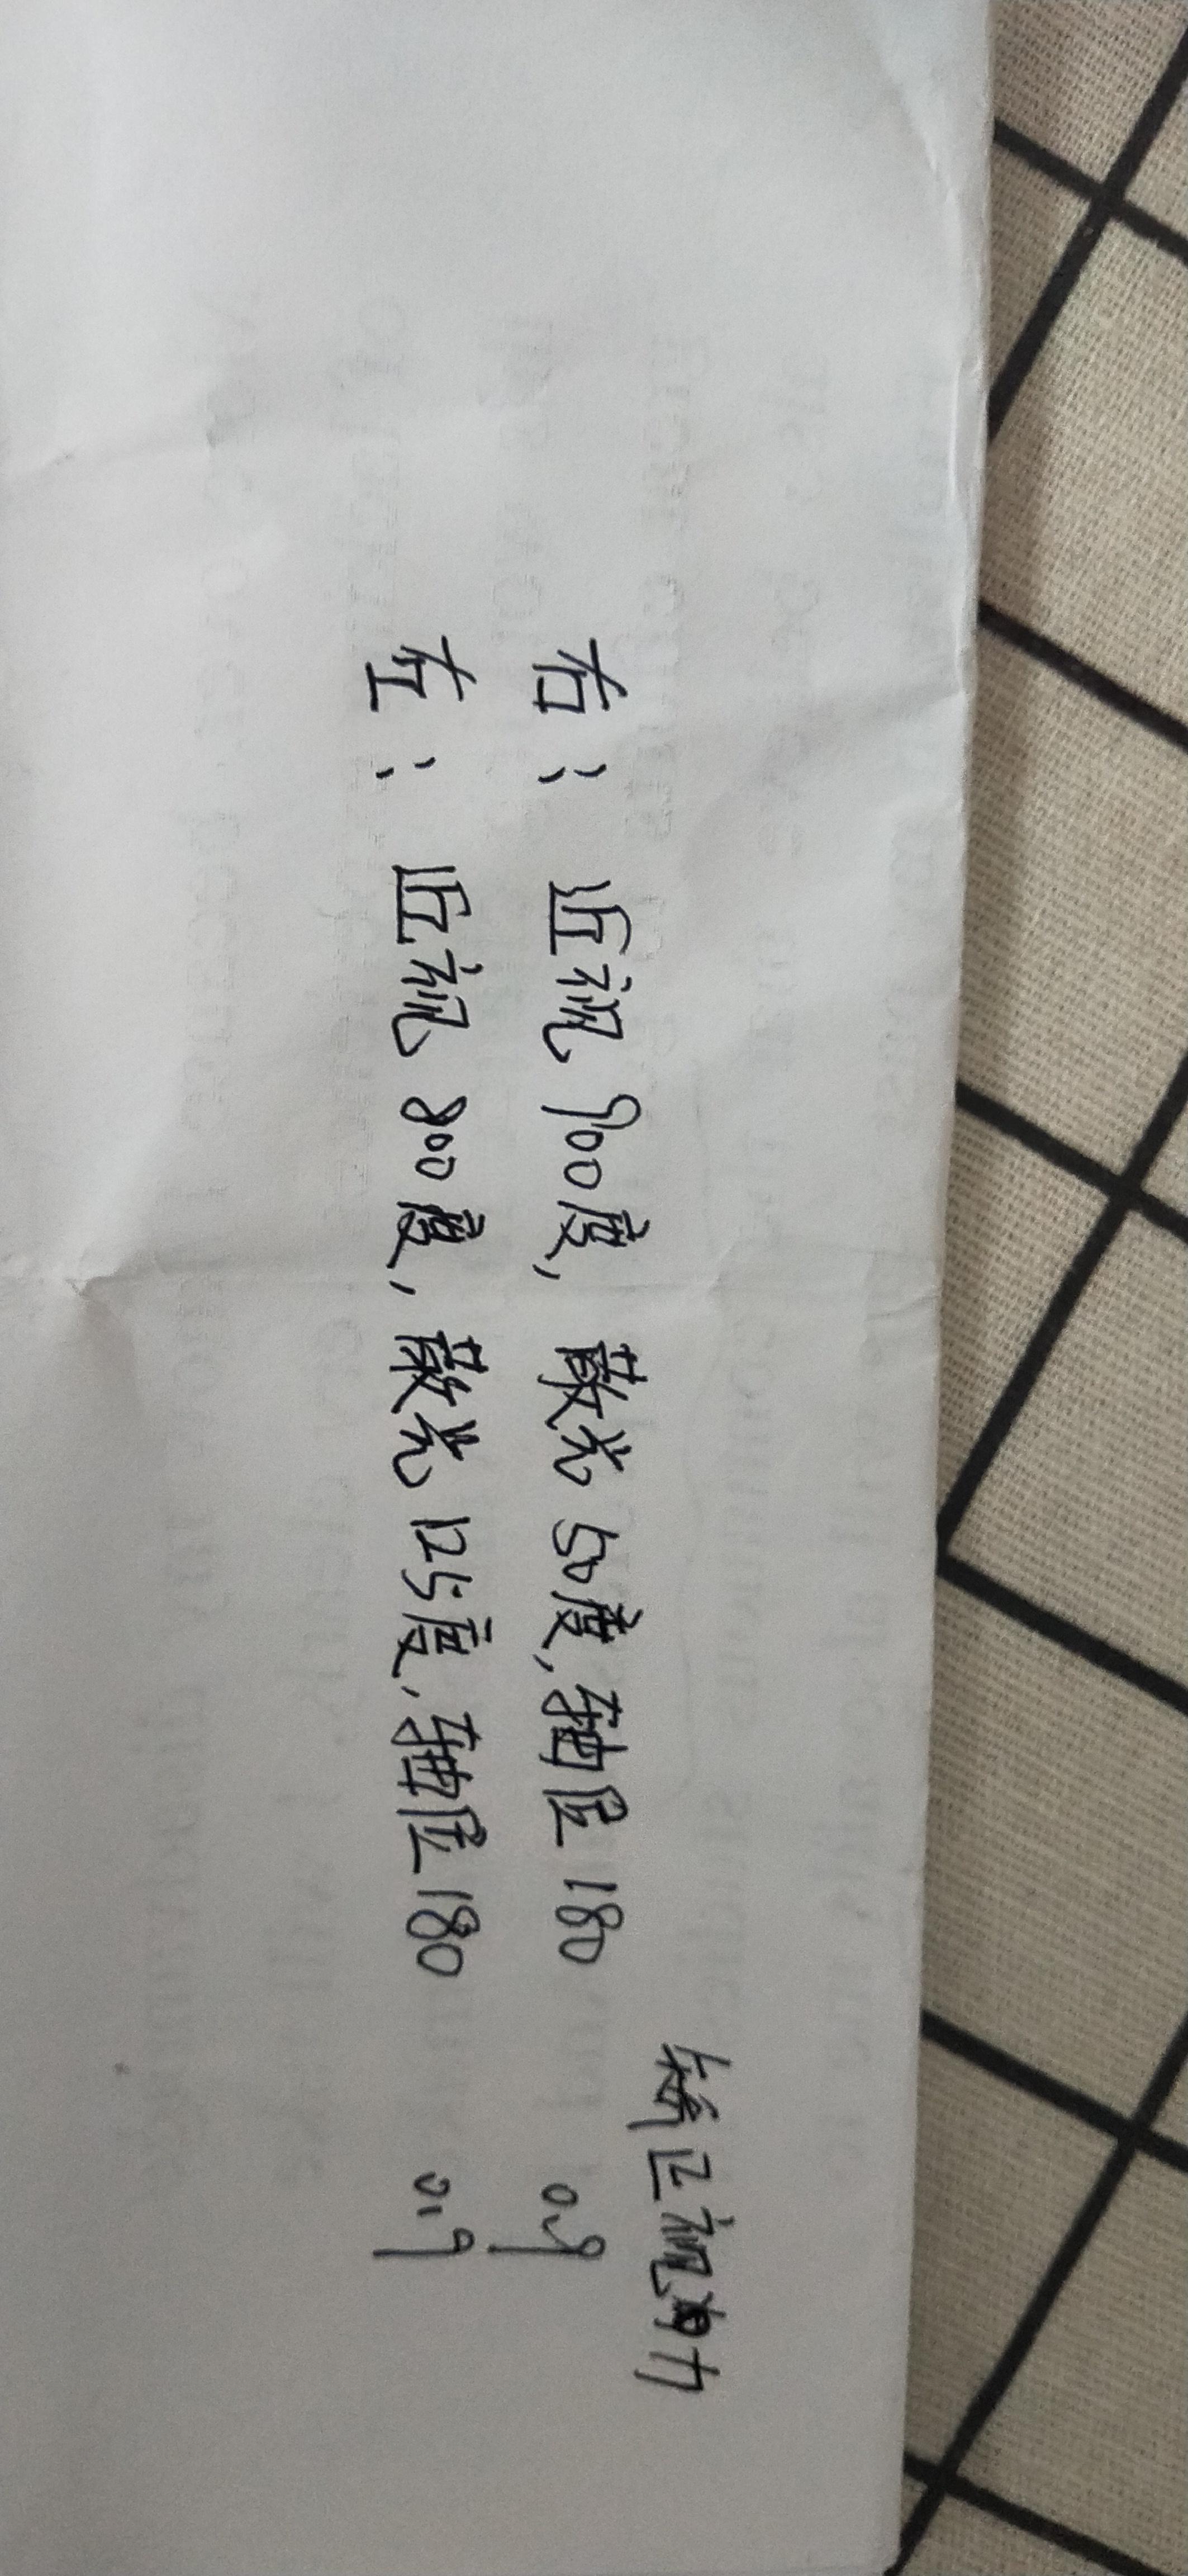 矫正视力
右: 近视 900度, 散光 50度, 轴位 180 0.9
左: 近视 800度, 散光 125度, 轴位 180 0.9